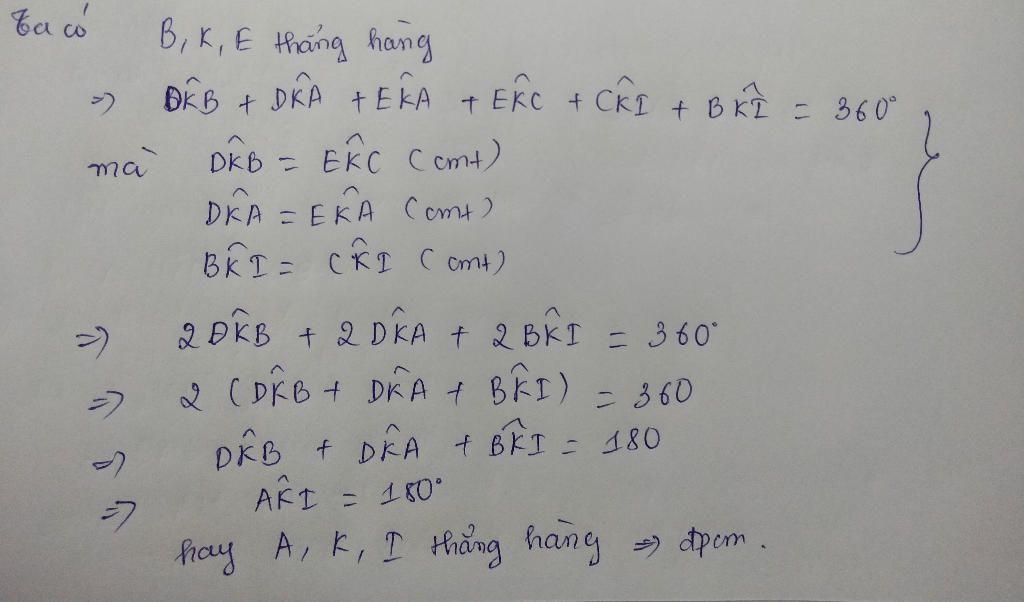 Ta có B, K, E thẳng hàng
=> DK̂B + DK̂A + EK̂A + EK̂C + CK̂I + BK̂I = 360°
mà DK̂B = EK̂C (cmt)
DK̂A = EK̂A (cmt)
BK̂I = CK̂I (cmt)
=> 2DK̂B + 2DK̂A + 2BK̂I = 360°
=> 2 (DK̂B + DK̂A + BK̂I) = 360
=> DK̂B + DK̂A + BK̂I = 180
=> AK̂I = 180°
hay A, K, I thẳng hàng => đpcm.